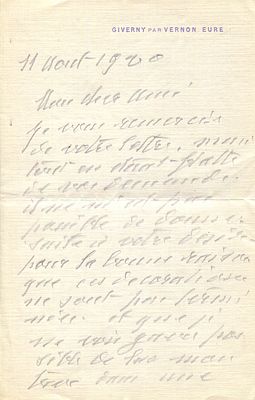 GIVERNY PAR VERNON EURE
11 Aout 1920
Mon cher ami
Je vous remercie
de votre lettre, mais
tout en étant flatté
de vos demande
il ne m'est pas
possible de donner
suite à votre désir
pour la bonne raison
que ces décorations
ne sont pas termi
nées et que je
ne vois guère pos
sible de les mon
trer dans une